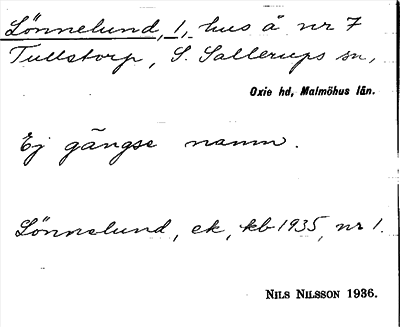 Lönnelund, 1, hus å nr 7
Tullstorp, S. Sallerups sn,
Oxie hd, Malmöhus län.
Ej gängse namn.
Lönnelund, ek, kb 1935, nr 1.
NILS NILSSON 1936.